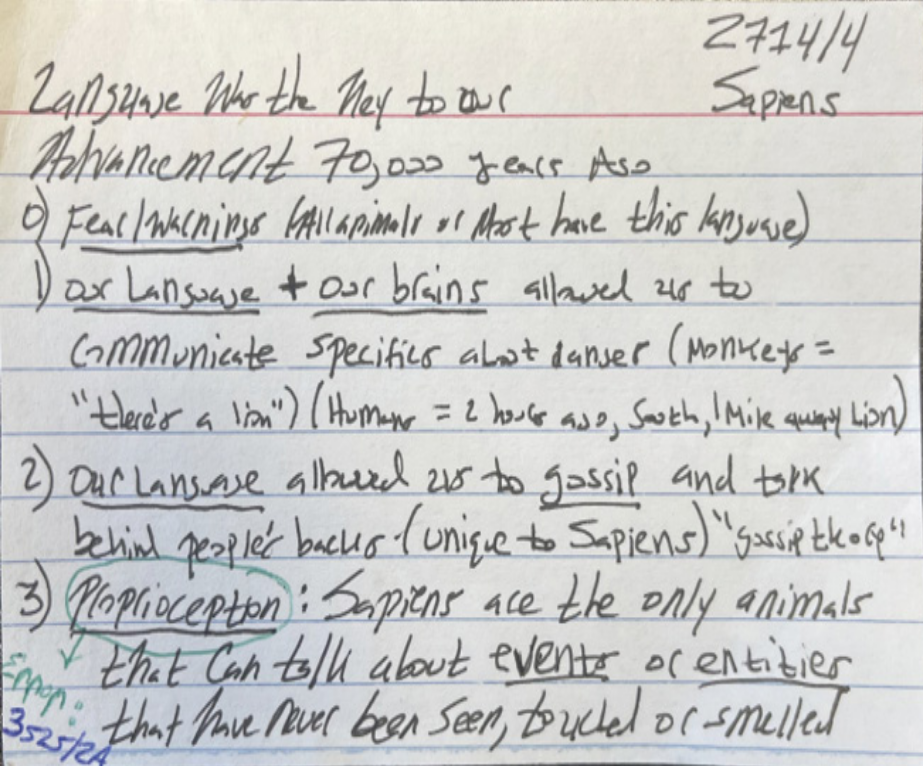 2714/4
Language Was the Key to our Sapiens
Advancement 70,000 years Ago
0) Fear/Warnings (All animals or Most have this language)
1) our Language + our brains allowed us to
communicate specifics about danger (Monkeys =
"there's a lion") (Humans = 2 hours ago, South, 1 Mile away Lion)
2) Our Language allowed us to gossip and talk
behind people's backs (unique to Sapiens) "gossip theory"
3) Proprioception: Sapiens are the only animals
that can talk about events or entities
Error: that have never been seen, touched or smelled
3525/2A